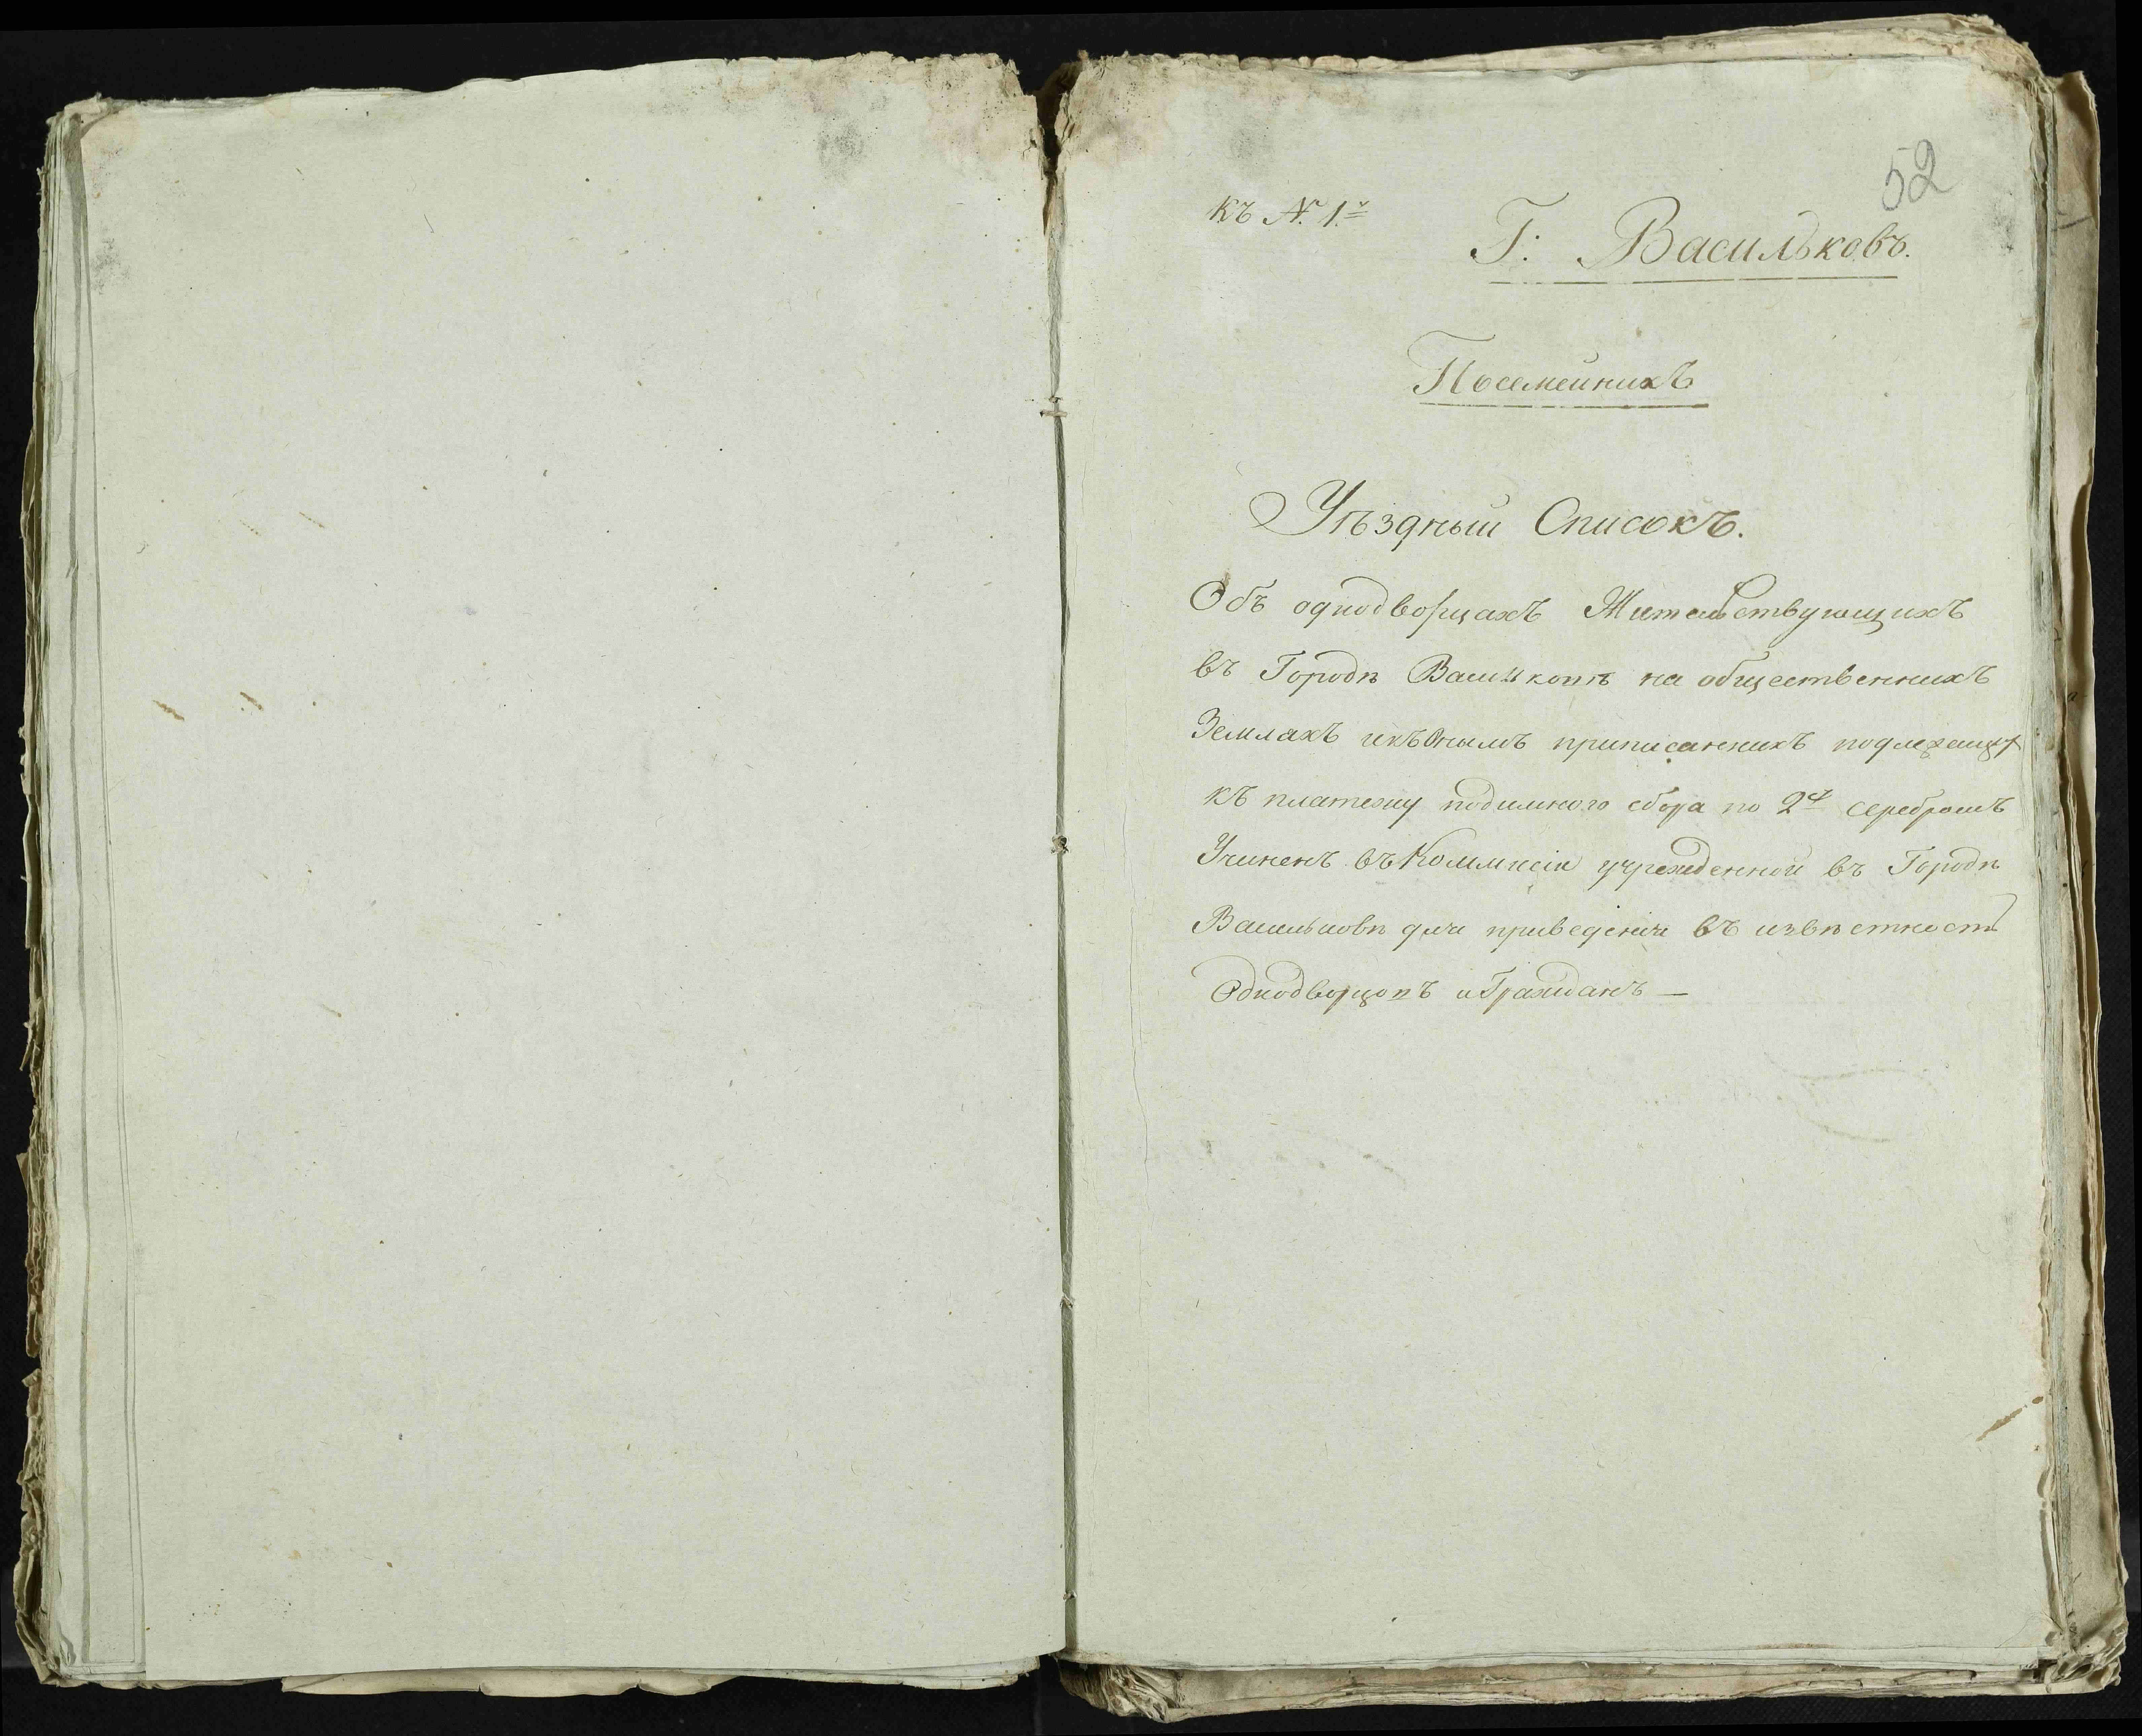 52
Къ №. 1.
Г: Васильковъ.
Посемейнихъ
Уѣздный Списокъ.
Объ однодворцахъ Жительствующихъ
въ Городѣ Василковѣ на общественнихъ
Земляхъ икъ Онымъ приписаннихъ подлежащих
къ платежу подимного сбора по 2 серебромъ
Учиненъ въ Коммисіи учрежденной въ Городѣ
Васильковѣ для приведенія въ извѣстность
Однодворцовъ и Гражданъ —